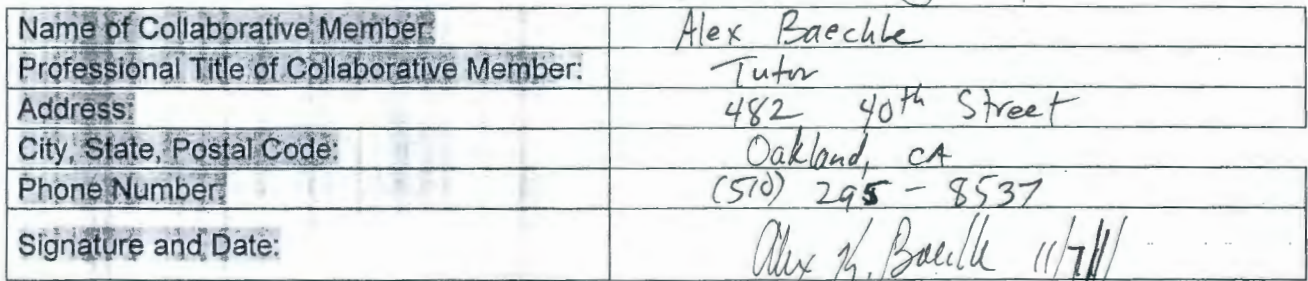 Name of Collaborative Member: Alex Baechle
Professional Title of Collaborative Member: Tutor
Address: 482 40th Street
City, State, Postal Code: Oakland, CA
Phone Number: (510) 295-8537
Signature and Date: Alex K. Baechle 11/7/11